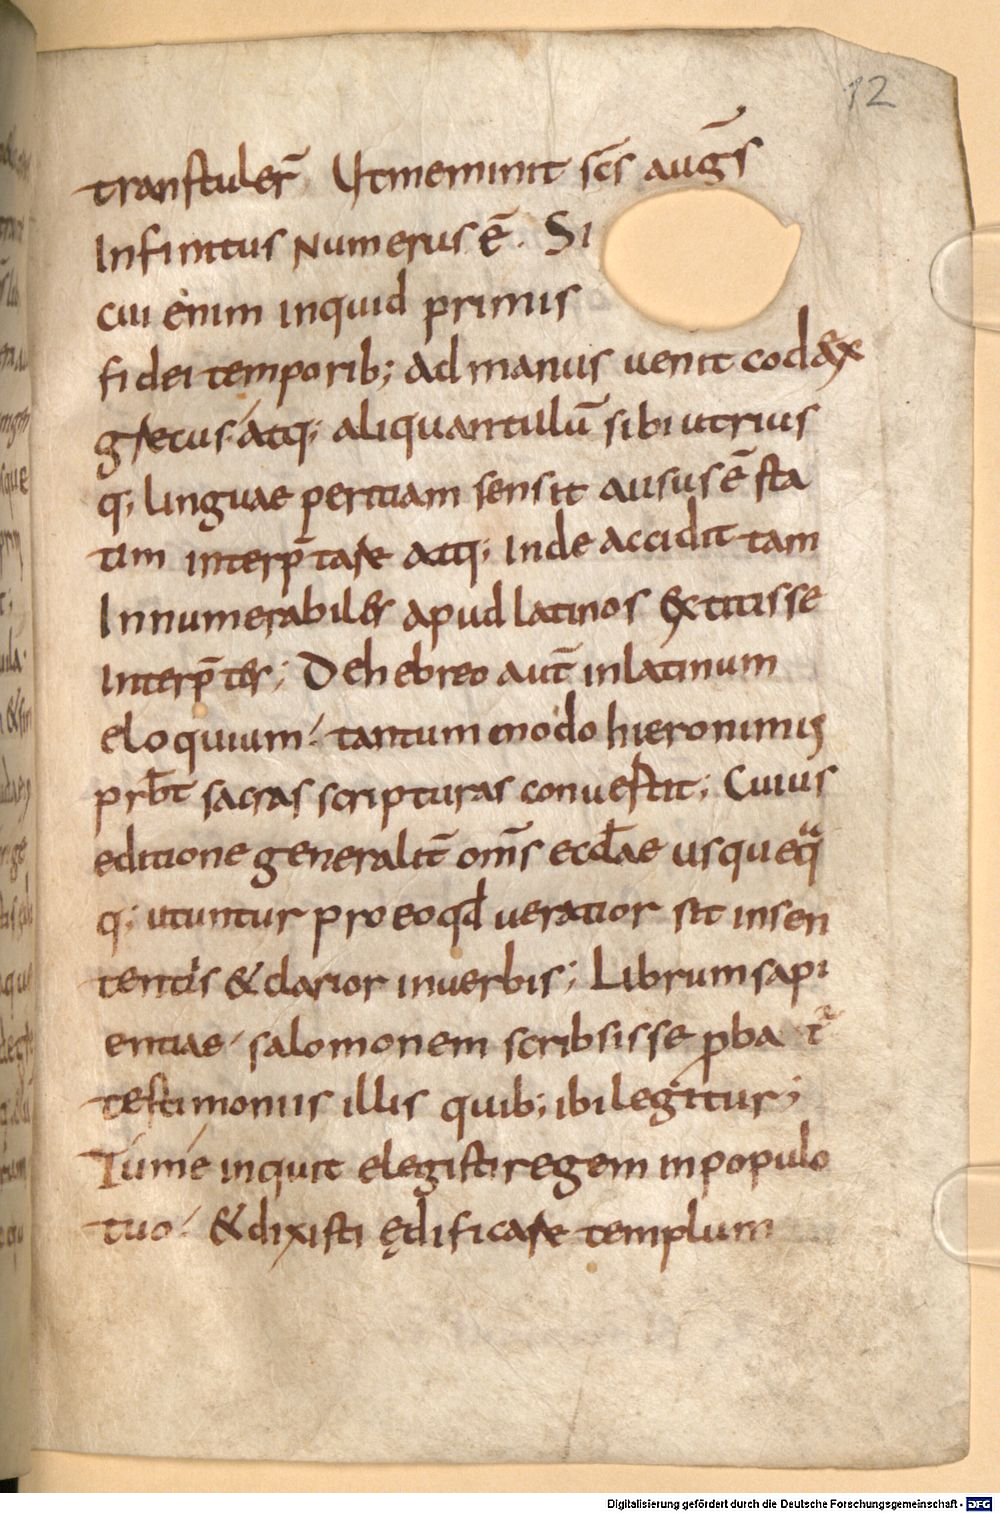 12
transtuler̄ Ut meminit sc̄s auḡs
Infinitus Numerus ē. Si
cui enim inquid primis
fidei temporib; ad manus uenit codex
grecus. atq; aliquantulū sibi utrius
q; linguae peritiam sensit ausus ē sta
tim interp̄tare atq; Inde accidit tam
Innumerabiles apud latinos extitisse
Interp̄tes; De hebreo aut̄ in latinum
eloquium. tantum modo hieronimus
prb̄t sacras scripturas conuertit; Cuius
editione generalit̄ om̄s eccl̄ae usqueqͣ
q; utuntur pro eo qd̄ ueratior sit in sen
tentiis & clarior in uerbis; Librum sapi
entiae. salomonem scribsisse ꝓbat̄
testimoniis illis quib; ibi legitur;
Tu me inquit elegisti regem in populo
tuo. & dixisti ędificare templum
Digitalisierung gefördert durch die Deutsche Forschungsgemeinschaft - DFG